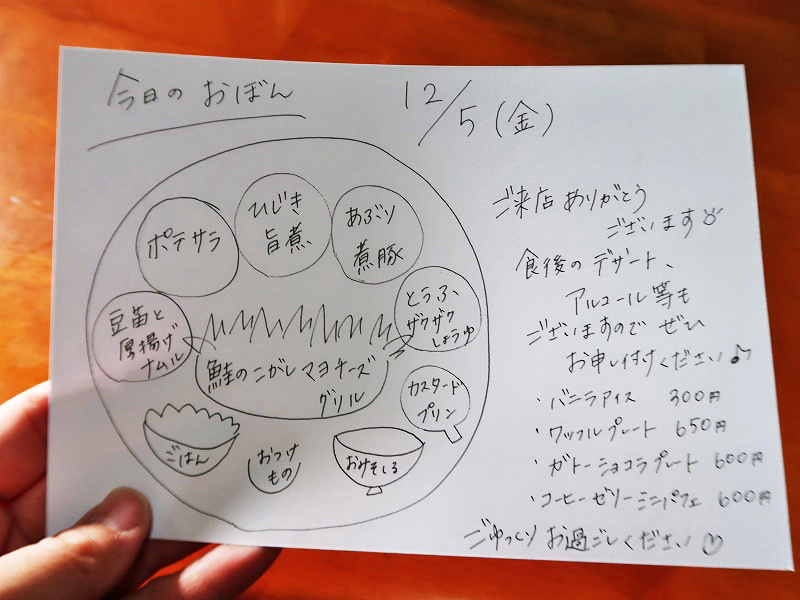 今日のおぼん
12/5(金)
ポテサラ
ひじき
旨煮
あぶり
煮豚
豆苗と
厚揚げ
ナムル
とうふ、
ザクザク
しょうゆ
鮭のこがしマヨチーズ
グリル
カスタード
プリン
ごはん
おつけ
もの
おみそしる
ご来店ありがとう
ございます
食後のデザート、
アルコール等も
ございますので ぜひ
お申し付けください♪
・バニラアイス 300円
・ワッフルプレート 650円
・ガトーショコラプレート 600円
・コーヒーゼリーミニパフェ 600円
ごゆっくりお過ごしください